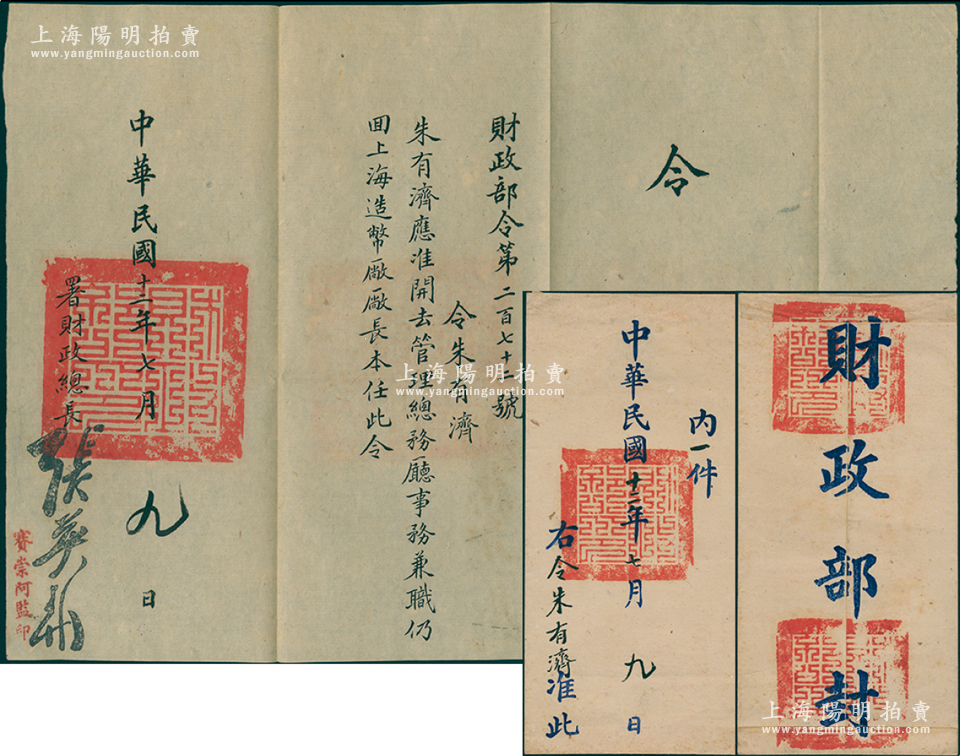 上海陽明拍賣
www.yangmingauction.com
令
財政部令第二百七十二號
令朱有濟
朱有濟應准開去管理總務廳事務兼職仍
回上海造幣廠廠長本任此令
中華民國十二年七月九日
署財政總長張英華
賽崇阿監印
上海陽明拍賣
www.yangmingauction.com
財政部封
內一件
中華民國十二年七月九日
右令朱有濟准此
上海陽明拍賣
www.yangmingauction.com